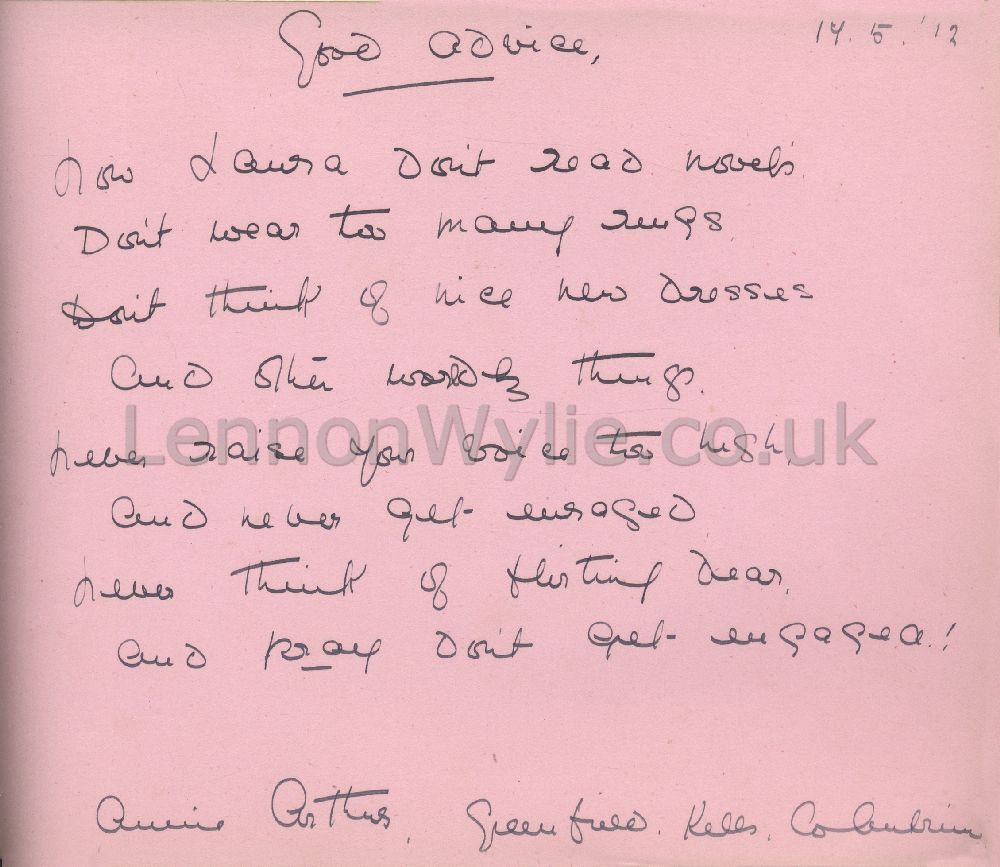 Good Advice,
14.5.'12
Now Laura Don't read novels
Don't wear too many rings
Don't think of nice new Dresses
And other worldly things.
LennonWylie.co.uk
Never raise your voice too high,
And never get enraged
Never think of flirting Dear,
And pray Don't get engaged!
Annie Arthur, Greenfield. Kells. Co Antrim